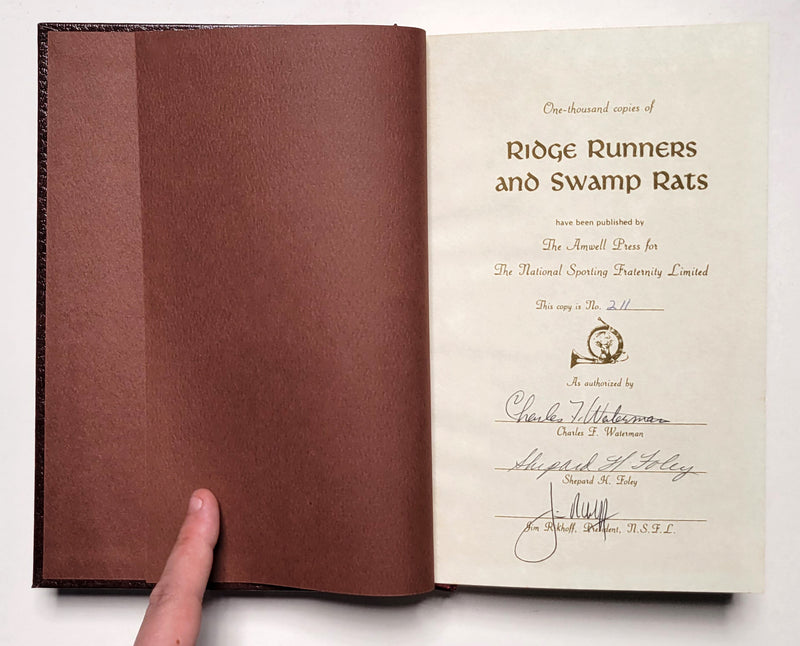 One-thousand copies of
Ridge Runners
and Swamp Rats
have been published by
The Amwell Press for
The National Sporting Fraternity Limited
This copy is No. 211
As authorized by
Charles F. Waterman
Charles F. Waterman
Shepard H Foley
Shepard H. Foley
Jim Rikhoff, President, N.S.F.L.